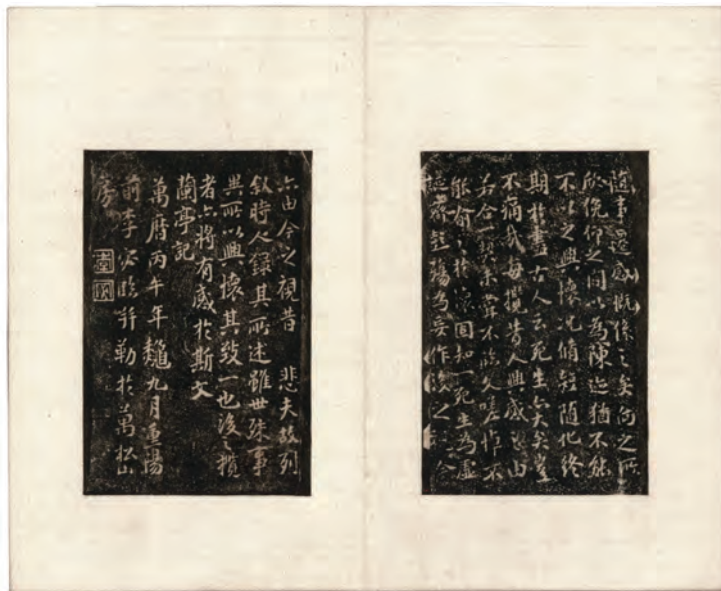 隨事遷感慨係之矣向之所
欣俛仰之間以為陳迹猶不能
不以之興懷況脩短隨化終
期於盡古人云死生亦大矣豈
不痛哉每攬昔人興感之由
若合一契未嘗不臨文嗟悼不
能喻之於懷固知一死生為虛
誕齊彭殤為妄作後之視今
亦由今之視昔 悲夫故列
敘時人錄其所述雖世殊事
異所以興懷其致一也後之攬
者亦將有感於斯文
蘭亭記
萬曆丙午年龝九月重陽
前李臨并勒於萬松山
房